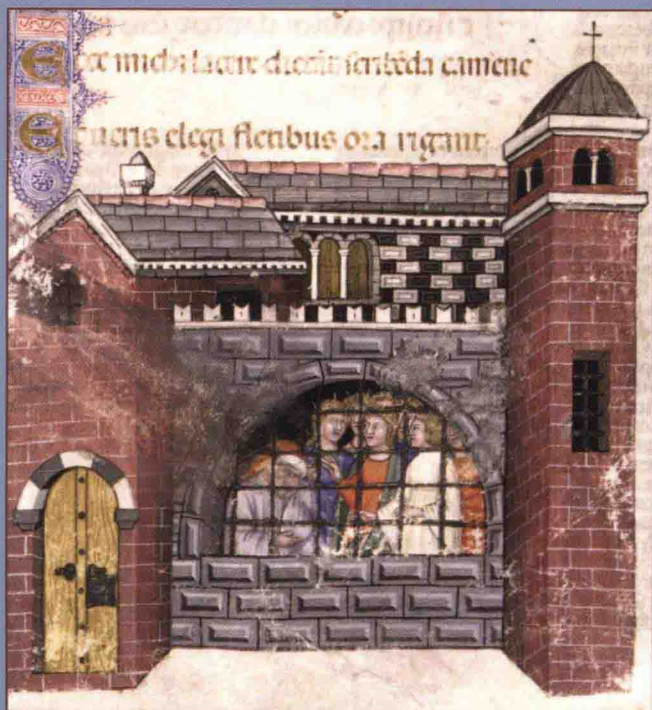 Ecce michi lacere dictãt scribẽda camene
Et ueris elegi fletibus ora rigant.